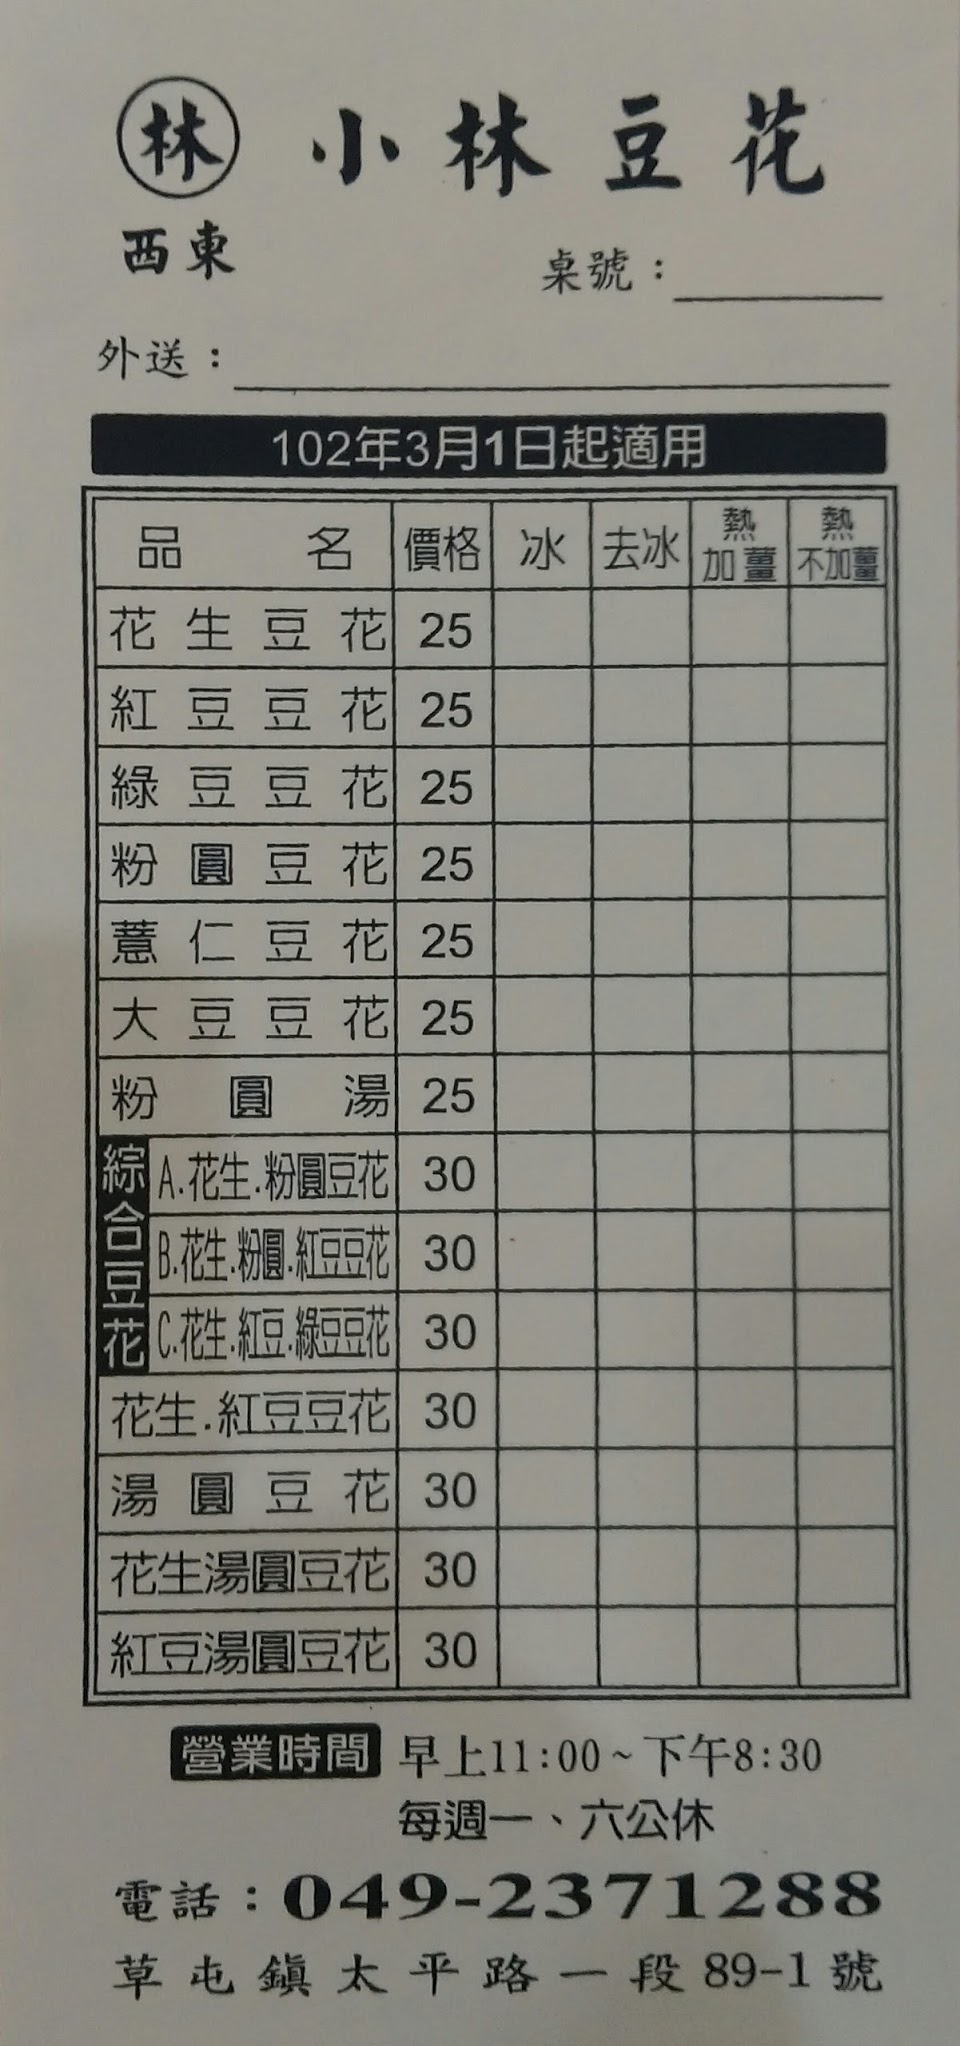 林 小林豆花
西東
桌號：
外送：
102年3月1日起適用
品名 價格 冰 去冰 熱加薑 熱不加薑
花生豆花 25
紅豆豆花 25
綠豆豆花 25
粉圓豆花 25
薏仁豆花 25
大豆豆花 25
粉圓湯 25
綜合豆花
A.花生.粉圓豆花 30
B.花生.粉圓.紅豆豆花 30
C.花生.紅豆.綠豆豆花 30
花生.紅豆豆花 30
湯圓豆花 30
花生湯圓豆花 30
紅豆湯圓豆花 30
營業時間 早上11:00~下午8:30
每週一、六公休
電話：049-2371288
草屯鎮太平路一段89-1號